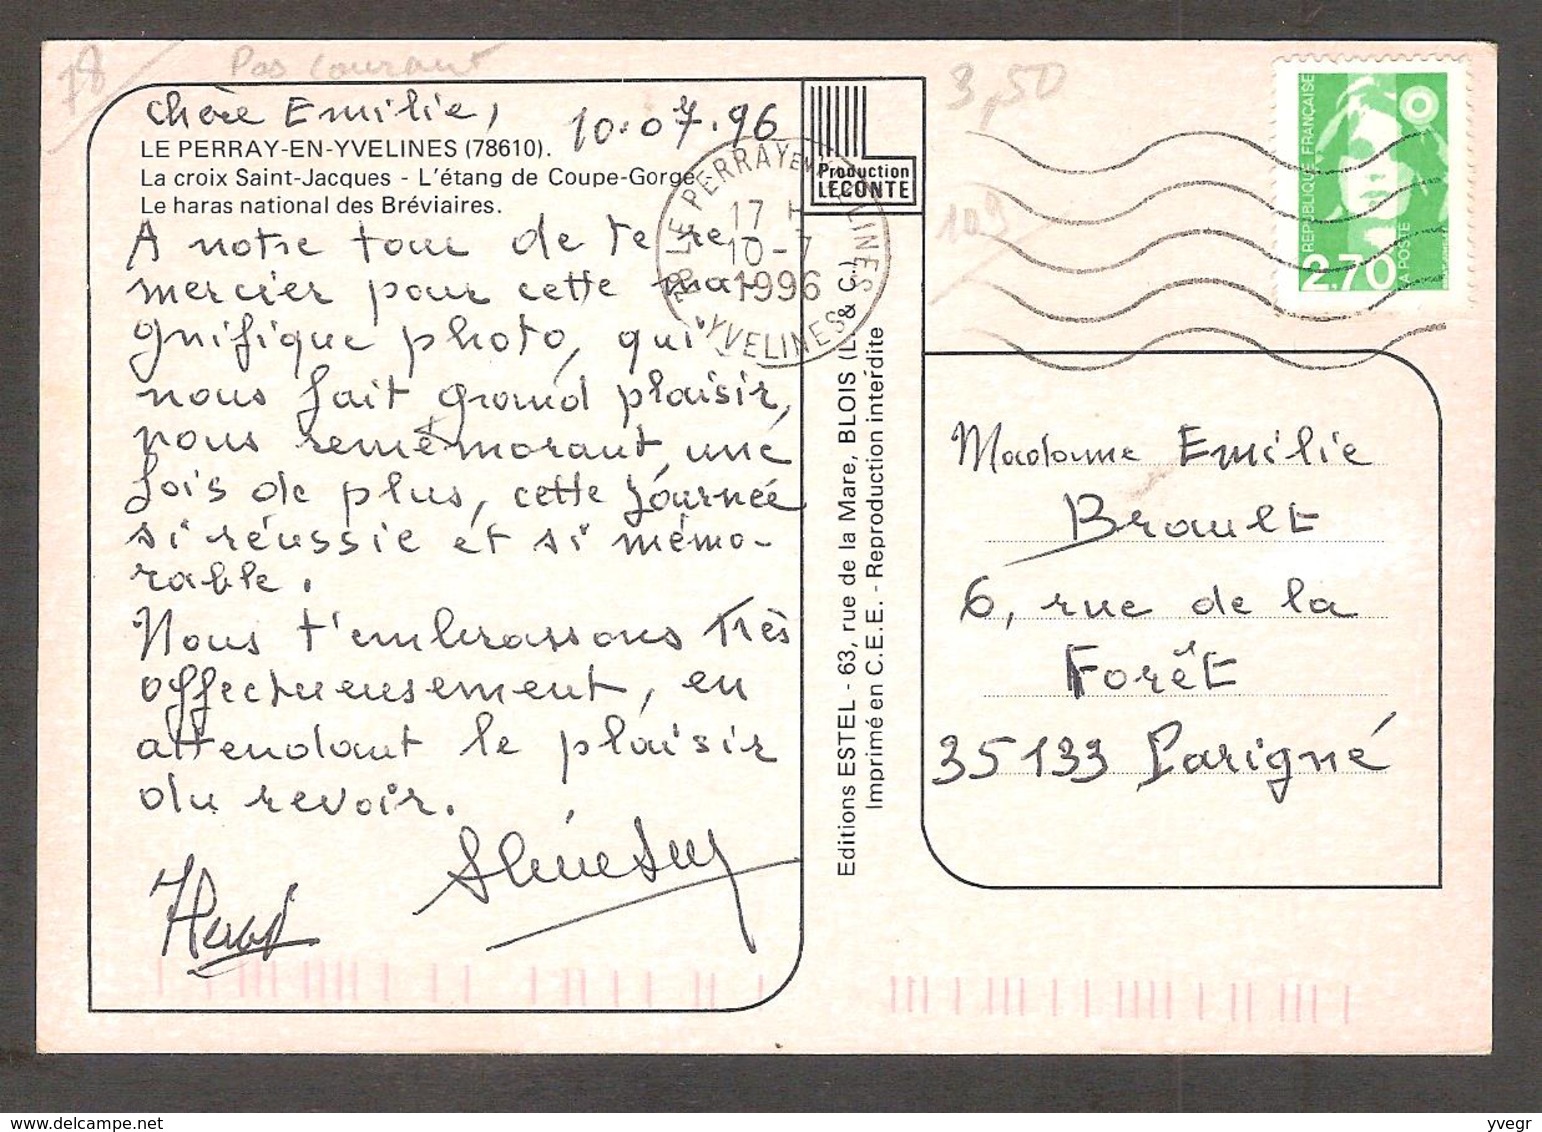 78
Pas courant
Chère Emilie,
10.07.96
LE PERRAY-EN-YVELINES (78610).
La croix Saint-Jacques - L'étang de Coupe-Gorge
Le haras national des Bréviaires.
A notre tour de te re
mercier pour cette ma-
gnifique photo, qui
nous fait grand plaisir,
nous remémorant, une
fois de plus, cette journée
si réussie et si mémo-
rable.
Nous t'embrassons très
affectueusement, en
attendant le plaisir
du revoir.
Production
LECONTE
78 LE PERRAY EN YVELINES
17 H
10-7
1996
YVELINES
Editions ESTEL - 63, rue de la Mare, BLOIS (L. & C.)
Imprimé en C.E.E. - Reproduction interdite
3,50
109
REPUBLIQUE FRANÇAISE
2,70
LA POSTE
Madame Emilie
Brault
6, rue de la
Forêt
35133 Parigné
yvegr © delcampe.net